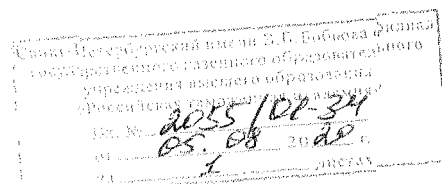 Санкт-Петербургский имени В.Б. Бобкова филиал
государственного казенного образовательного
учреждения высшего образования
«Российская таможенная академия»
Вх. № 2055/01-34
от 05. 08 2020 г.
на 1 листах